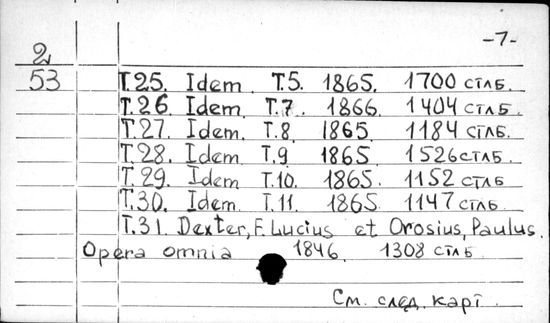 -7-
2
53 Т.25. Idem. Т.5. 1865. 1700 стлб.
Т.26. Idem. Т.7. 1866. 1404 стлб.
Т.27. Idem. Т.8 1865. 1184 стлб.
Т.28. Idem. Т.9 1865. 1526 стлб.
Т.29. Idem Т.10. 1865. 1152 стлб.
Т.30. Idem. Т.11. 1865. 1147 стлб.
Т.31. Dexter, F. Lucius et Orosius, Paulus.
Opera omnia 1846. 1308 стлб
См. след. карт.